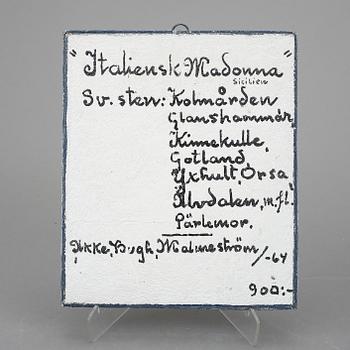 "Italiensk Madonna"
Sicilien
Sv. sten: Kolmården
Glanshammar,
Kinnekulle,
Gotland,
Yxhult, Orsa
Älvdalen, m.fl.
Pärlemor.
Akke, Hugh, Malmeström/-64
900:-